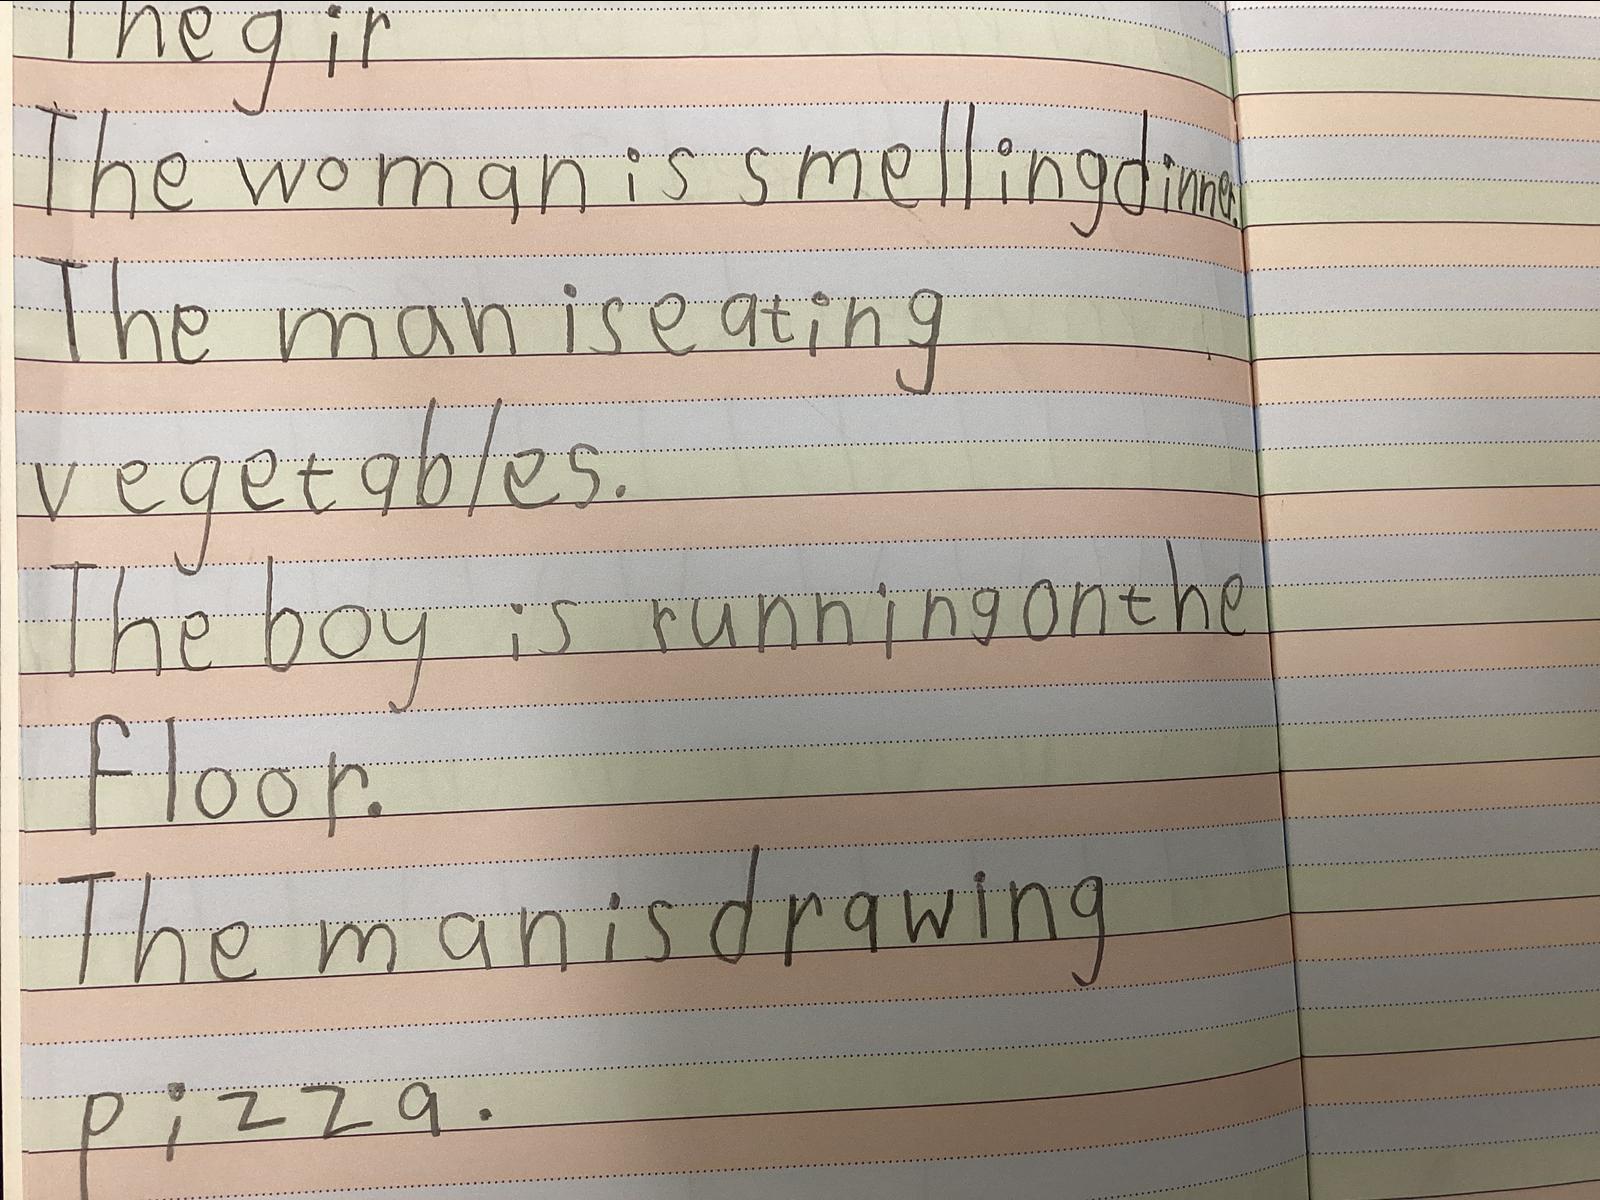 The gir
The woman is smelling dinner.
The man is eating
vegetables.
The boy is running on the
floor.
The man is drawing
pizza.